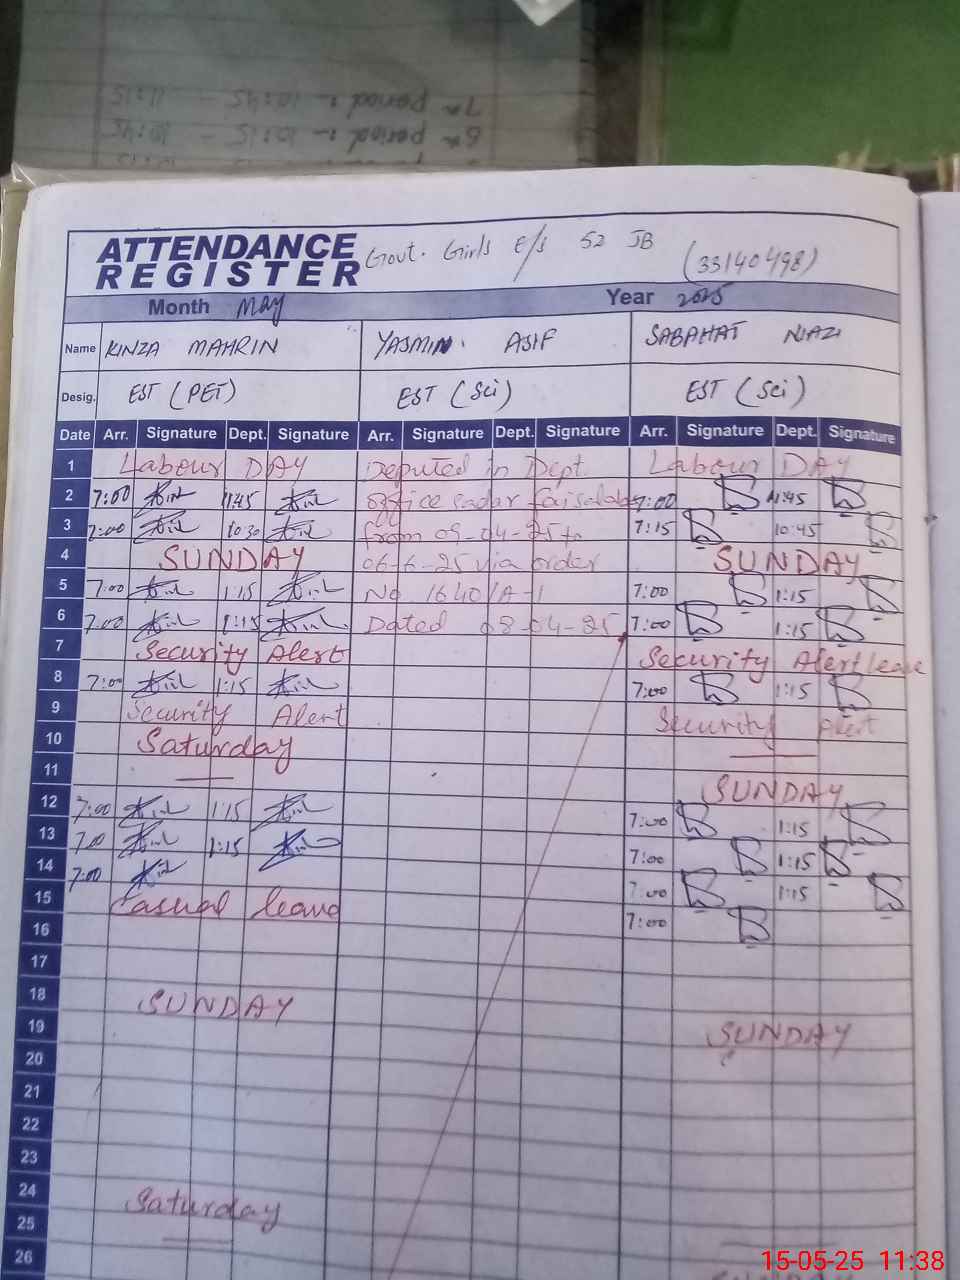 7th period :- 10:45 - 11:15
6th period :- 10:15 - 10:45
ATTENDANCE REGISTER Govt. Girls E/S 52 JB (33140498)
Month May Year 2025
Name KINZA MAHRIN YASMIN ASIF SABAHAT NIAZI
Desig. EST (PET) EST (Sci) EST (Sci)
Date Arr. Signature Dept. Signature Arr. Signature Dept. Signature Arr. Signature Dept. Signature
1 Labour DAY Deputed in Dept. Labour DAY
2 7:00 1:45 office sadar Faisalabad 7:00 1:45
3 7:00 10:30 from 09-04-25 to 7:15 10:45
4 SUNDAY 06-6-25 via order SUNDAY
5 7:00 1:15 No 1640/A-1 7:00 1:15
6 7:00 1:15 Dated 08-04-25 7:00 1:15
7 Security Alert Security Alert leave
8 7:00 1:15 7:00 1:15
9 Security Alert Security Alert
10 Saturday
11 SUNDAY
12 7:00 1:15 7:00 1:15
13 7:00 1:15 7:00 1:15
14 7:00 7:00 1:15
15 Casual leave 7:00
16
17
18 SUNDAY
19 SUNDAY
20
21
22
23
24 Saturday
25
26
15-05-25 11:38